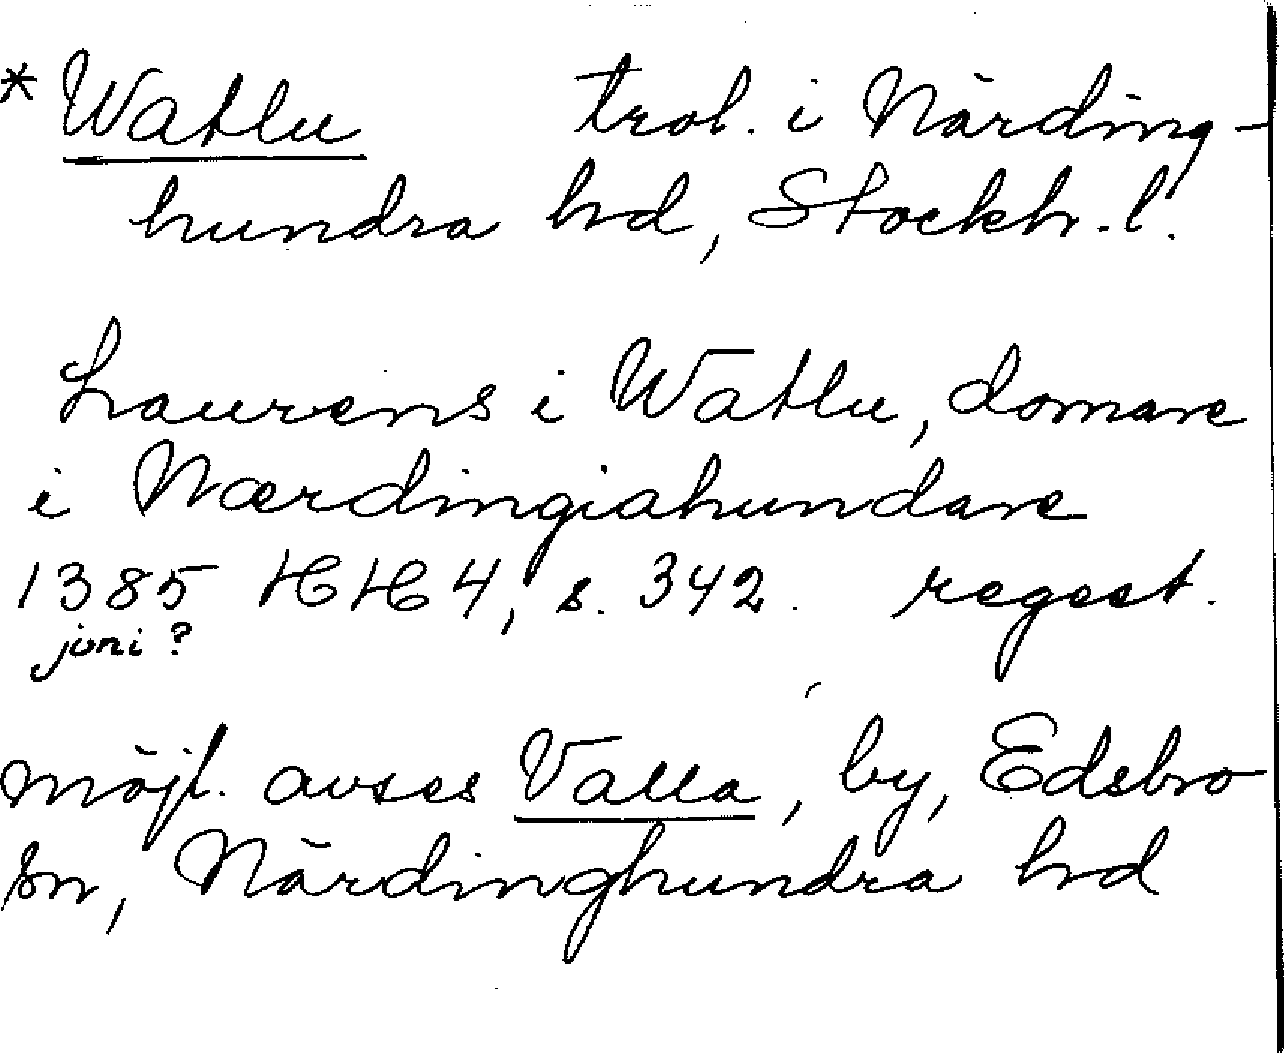 * Watlu trol. i Närding-
hundra hd, Stockh. l.
Laurens i Watlu, domare
i Nærdingiahundare
1385 HH 4, s. 342. regest.
juni?
möjl. avses Valla, by, Edsbro
sn, Närdinghundra hd